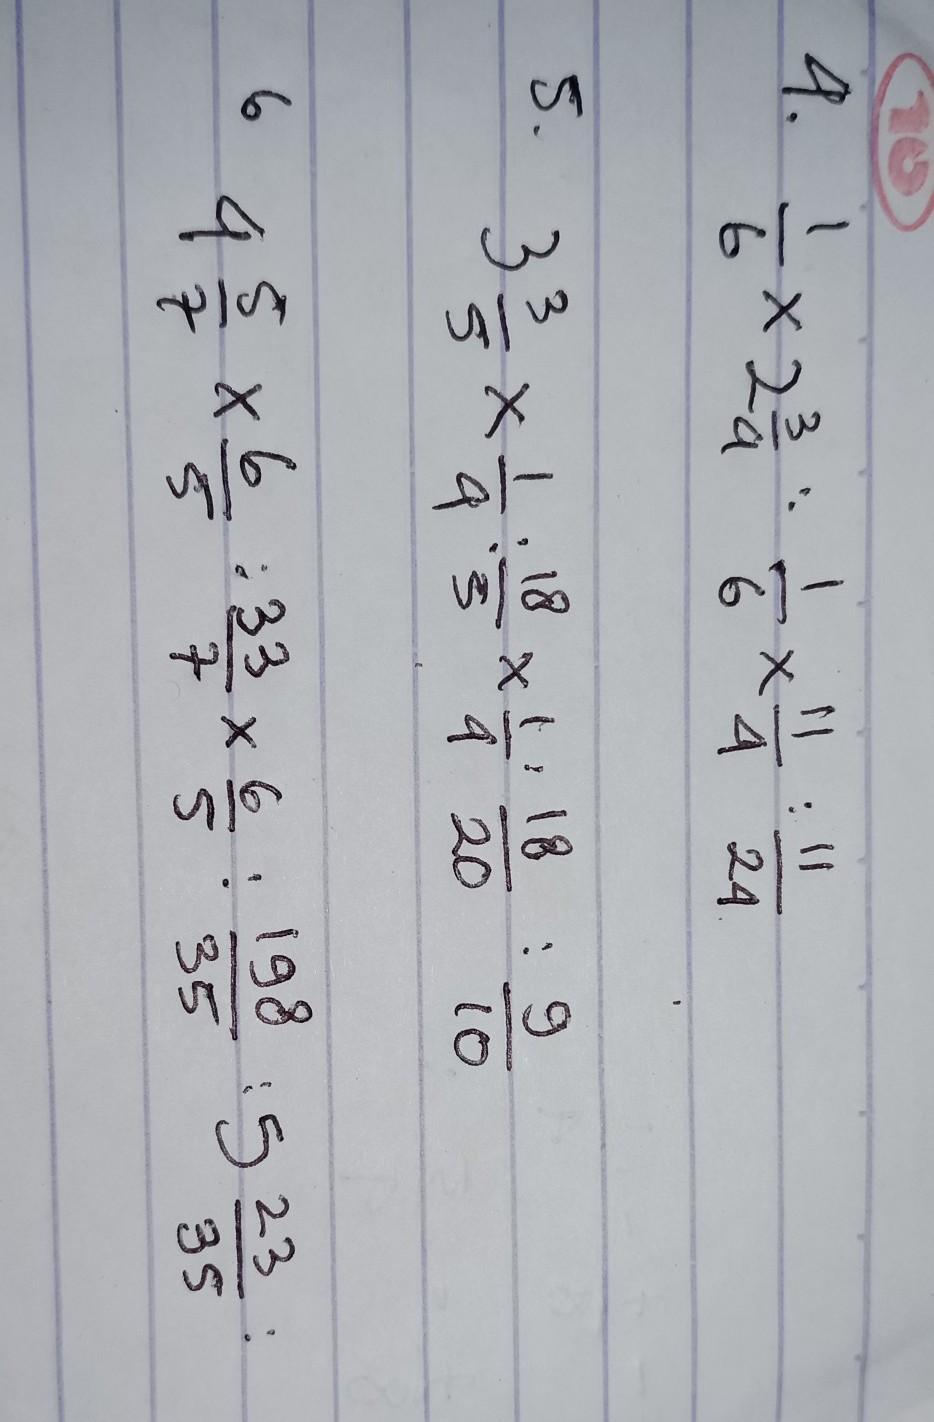 10
4. 1/6 × 2 3/4 : 1/6 × 11/4 : 11/24
5. 3 3/5 × 1/4 : 18/5 × 1/4 : 18/20 : 9/10
6 4 5/7 × 6/5 : 33/7 × 6/5 : 198/35 : 5 23/35 :